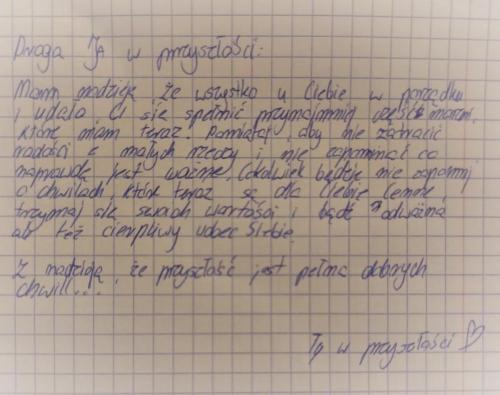 Droga JA w przyszłości:
Mam nadzieję że wszystko u Ciebie w porządku
i udało Ci się spełnić przynajmniej część marzeń,
które mam teraz. Pamiętaj, aby nie zatracić
radości z małych rzeczy i nie zapominać co
naprawdę jest ważne. Cokolwiek będzie nie zapomnij
o chwilach, które teraz są dla Ciebie cenne,
trzymaj się swoich wartości i bądź odważna
ale też cierpliwy wobec Siebie.
Z nadzieją, że przyszłość jest pełna dobrych
chwil...
Ty w przyszłości ♡